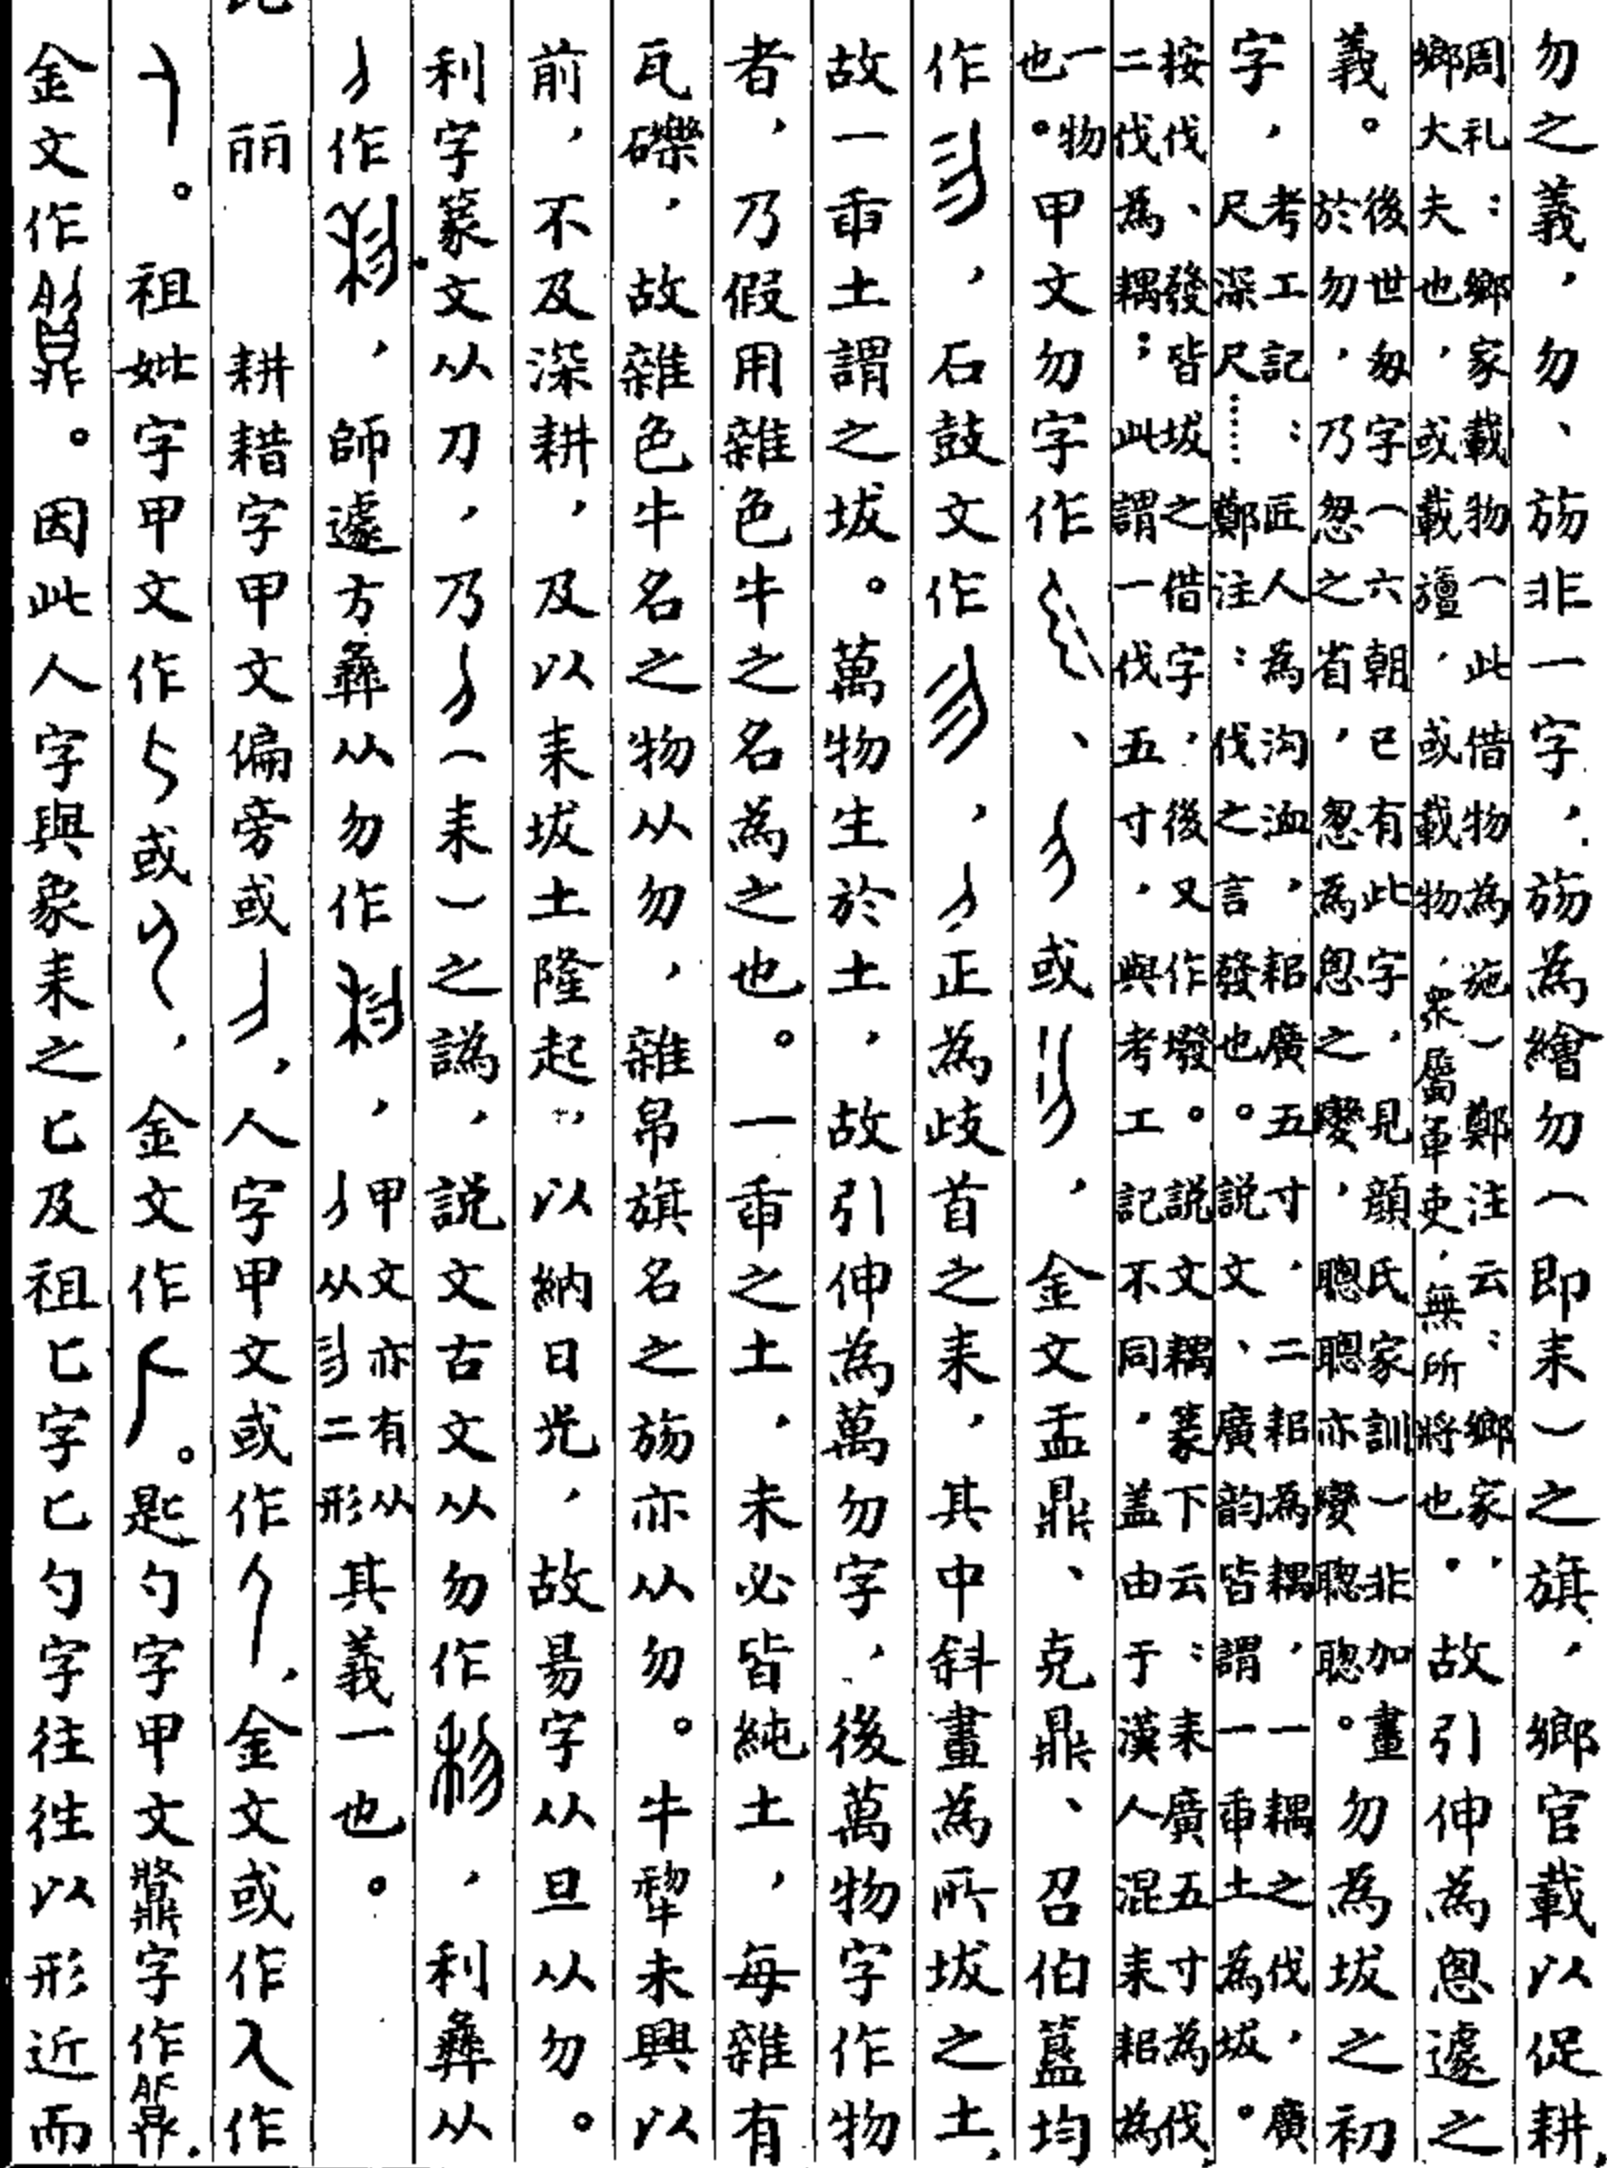 勿之義，勿、𣃦非一字，𣃦為繪勿（即耒）之旗，鄉官載以促耕，
周礼：鄉家載物（此借物為施）鄭注云：鄉家，
鄉大夫也，或載旜，或載物，衆屬軍吏，無所將也．故引伸為恖遽之
義。後世匆字（六朝已有此字，見顏氏家訓）非加畫
於勿，乃怱之省，怱為恖之變，聰亦變聦聡。勿為坺之初
字，考工記：匠人為沟洫，耜廣五寸，二耜為耦，一耦之伐，廣
尺深尺……鄭注：伐之言發也。説文、廣韵皆謂一臿土為坺。
按伐、發皆坺之借字，後又作墢。説文耦篆下云：耒廣五寸為伐
二伐為耦；此謂一伐五寸，與考工記不同，盖由于漢人混耒耜為
一物也。甲文勿字作、或，金文盂鼎、克鼎、召伯簋均
作，石鼓文作，正為歧首之耒，其中斜畫為所坺之土，
故一臿土謂之坺。萬物生於土，故引伸為萬勿字，後萬物字作物
者，乃假用雜色牛之名為之也。一臿之土，未必皆純土，每雜有
瓦礫，故雜色牛名之物从勿，雜帛旗名之𣃦亦从勿。牛犂未興以
前，不及深耕，及以耒坺土隆起，以納日光，故昜字从旦从勿。
利字篆文从刀，乃（耒）之譌，説文古文从勿作，利彝从
作，師遽方彝从勿作，甲文亦有从从二形其義一也。
丽　耕耤字甲文偏旁或，人字甲文或作，金文或作入作
。祖妣字甲文作或，金文作。匙勺字甲文字作
金文作。因此人字與象耒之匕及祖匕字匕勺字往往以形近而